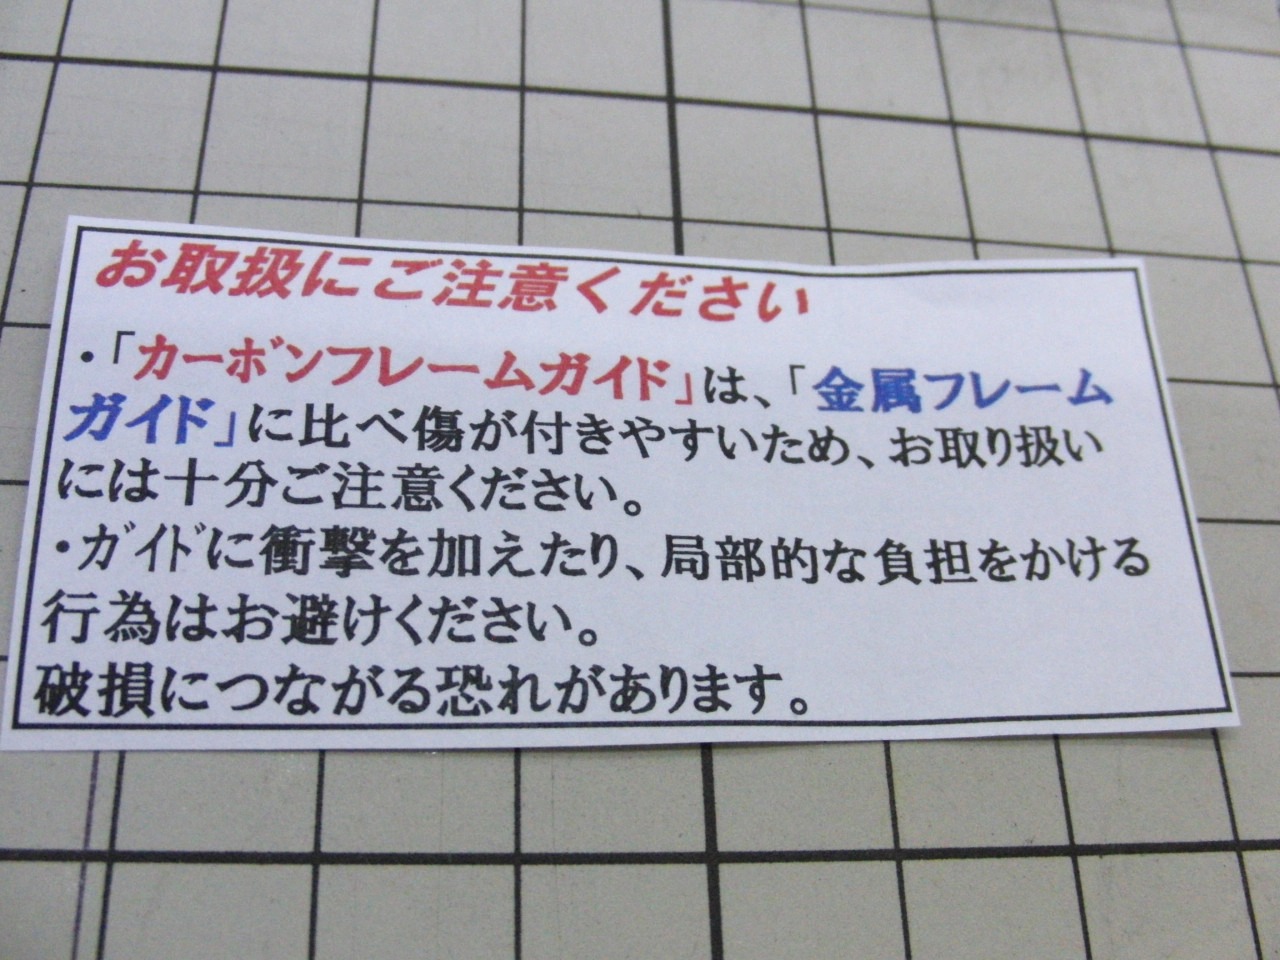 お取扱にご注意ください
・「カーボンフレームガイド」は、「金属フレーム
ガイド」に比べ傷が付きやすいため、お取り扱い
には十分ご注意ください。
・ガイドに衝撃を加えたり、局部的な負担をかける
行為はお避けください。
破損につながる恐れがあります。